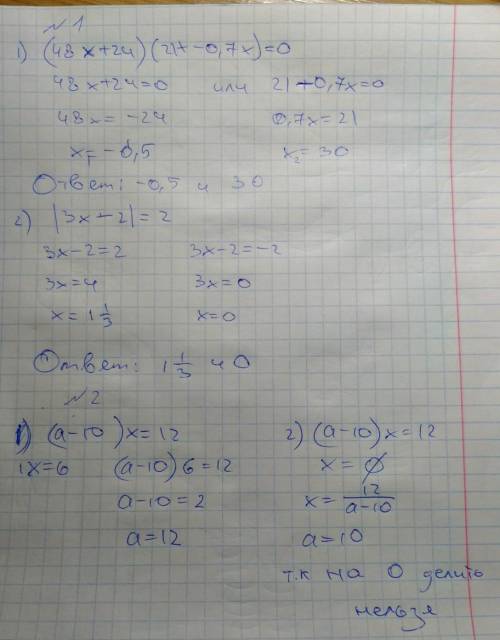 №1
1) (48x+24)(21-0,7x)=0
48x+24=0 или 21-0,7x=0
48x=-24 0,7x=21
x₁=-0,5 x₂=30
Ответ: -0,5 и 30
2) |3x-2|=2
3x-2=2 3x-2=-2
3x=4 3x=0
x=1 1/3 x=0
Ответ: 1 1/3 и 0
№2
1) (a-10)x=12
x=6 (a-10)6=12
a-10=2
a=12
2) (a-10)x=12
x=∅
x=12/(a-10)
a=10
т.к на 0 делить
нельзя